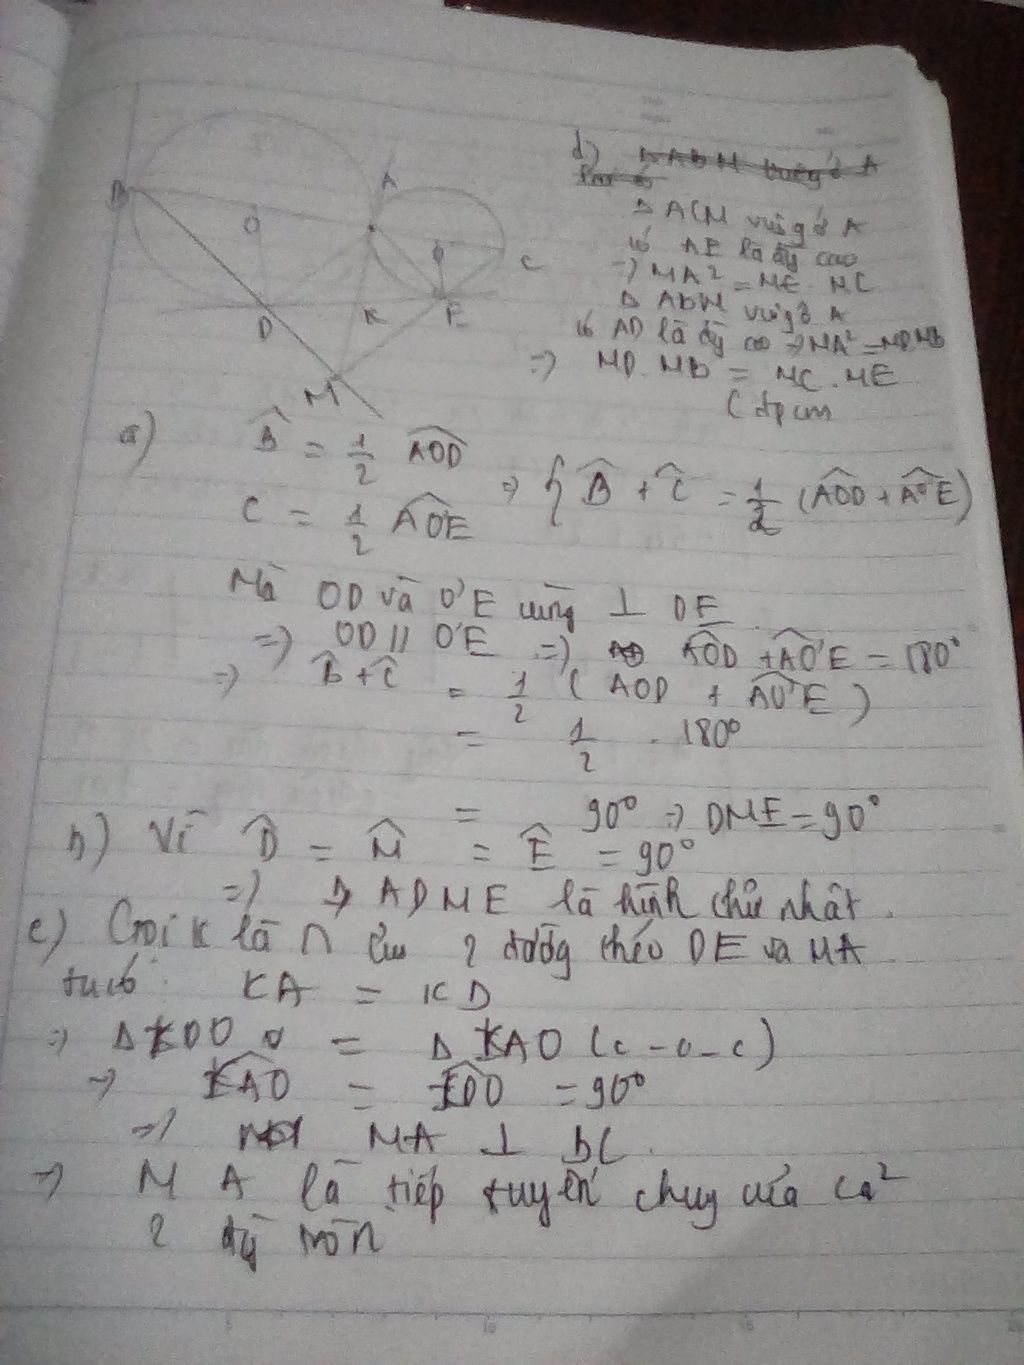 B
A
O
O'
C
D
K
E
M
d) Δ ABM vuông ở A
Δ ACM vuông ở A
có AE là đg cao
=> MA² = ME . MC
Δ ABM vuông ở A
có AD là đg cao => MA² = MD MB
=> MD . MB = MC . ME
(đpcm
a) B̂ = 1/2 AOD
C = 1/2 AO'E => { B̂ + Ĉ = 1/2 (AOD + AO'E)
Mà OD và O'E cùng ⊥ DE
=> OD // O'E => AOD + AO'E = 180°
=> B̂ + Ĉ = 1/2 ( AOD + AO'E )
= 1/2 . 180°
= 90° => DME = 90°
b) Vì D̂ = M̂ = Ê = 90°
=> ADME là hình chữ nhật .
c) Gọi K là ∩ của 2 đường chéo DE và MA
ta có KA = KD
=> Δ KDO = Δ KAO (c - c - c)
=> KAO = KDO = 90°
=> MA ⊥ BC .
=> MA là tiếp tuyến chug của cả
2 đg tròn